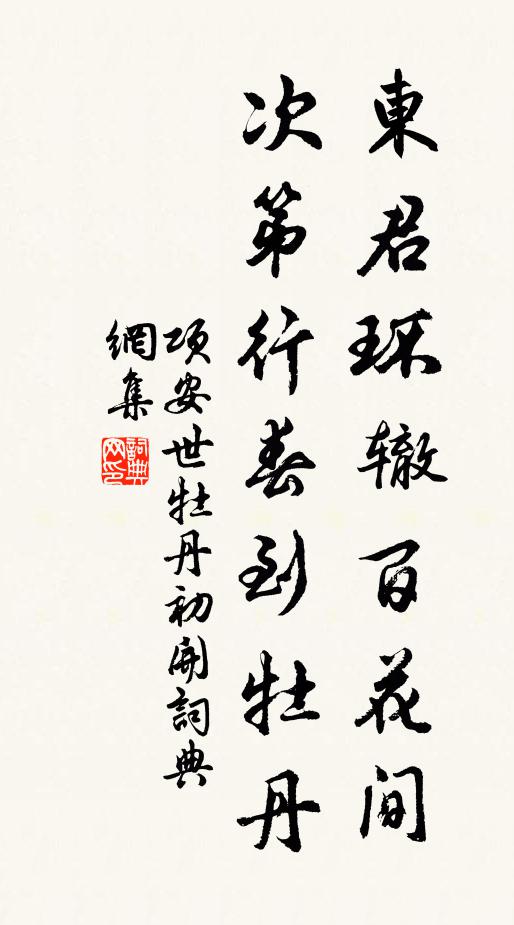 東君环辙百花间
次第行春到牡丹
项安世牡丹初開詞典
網集
詞典网印